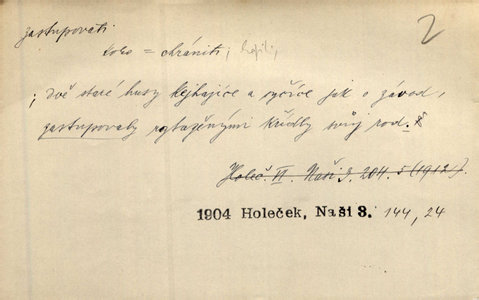 zastupovati
2
koho = chrániti; hájiti,
; dvě staré husy kejhajíce a syčíce jak o závod,
zastupovaly roztaženými křídly svůj rod.
Holeč. II. Naši 3. 204. 5 (1912).
1904 Holeček, Naši 3. 144, 24